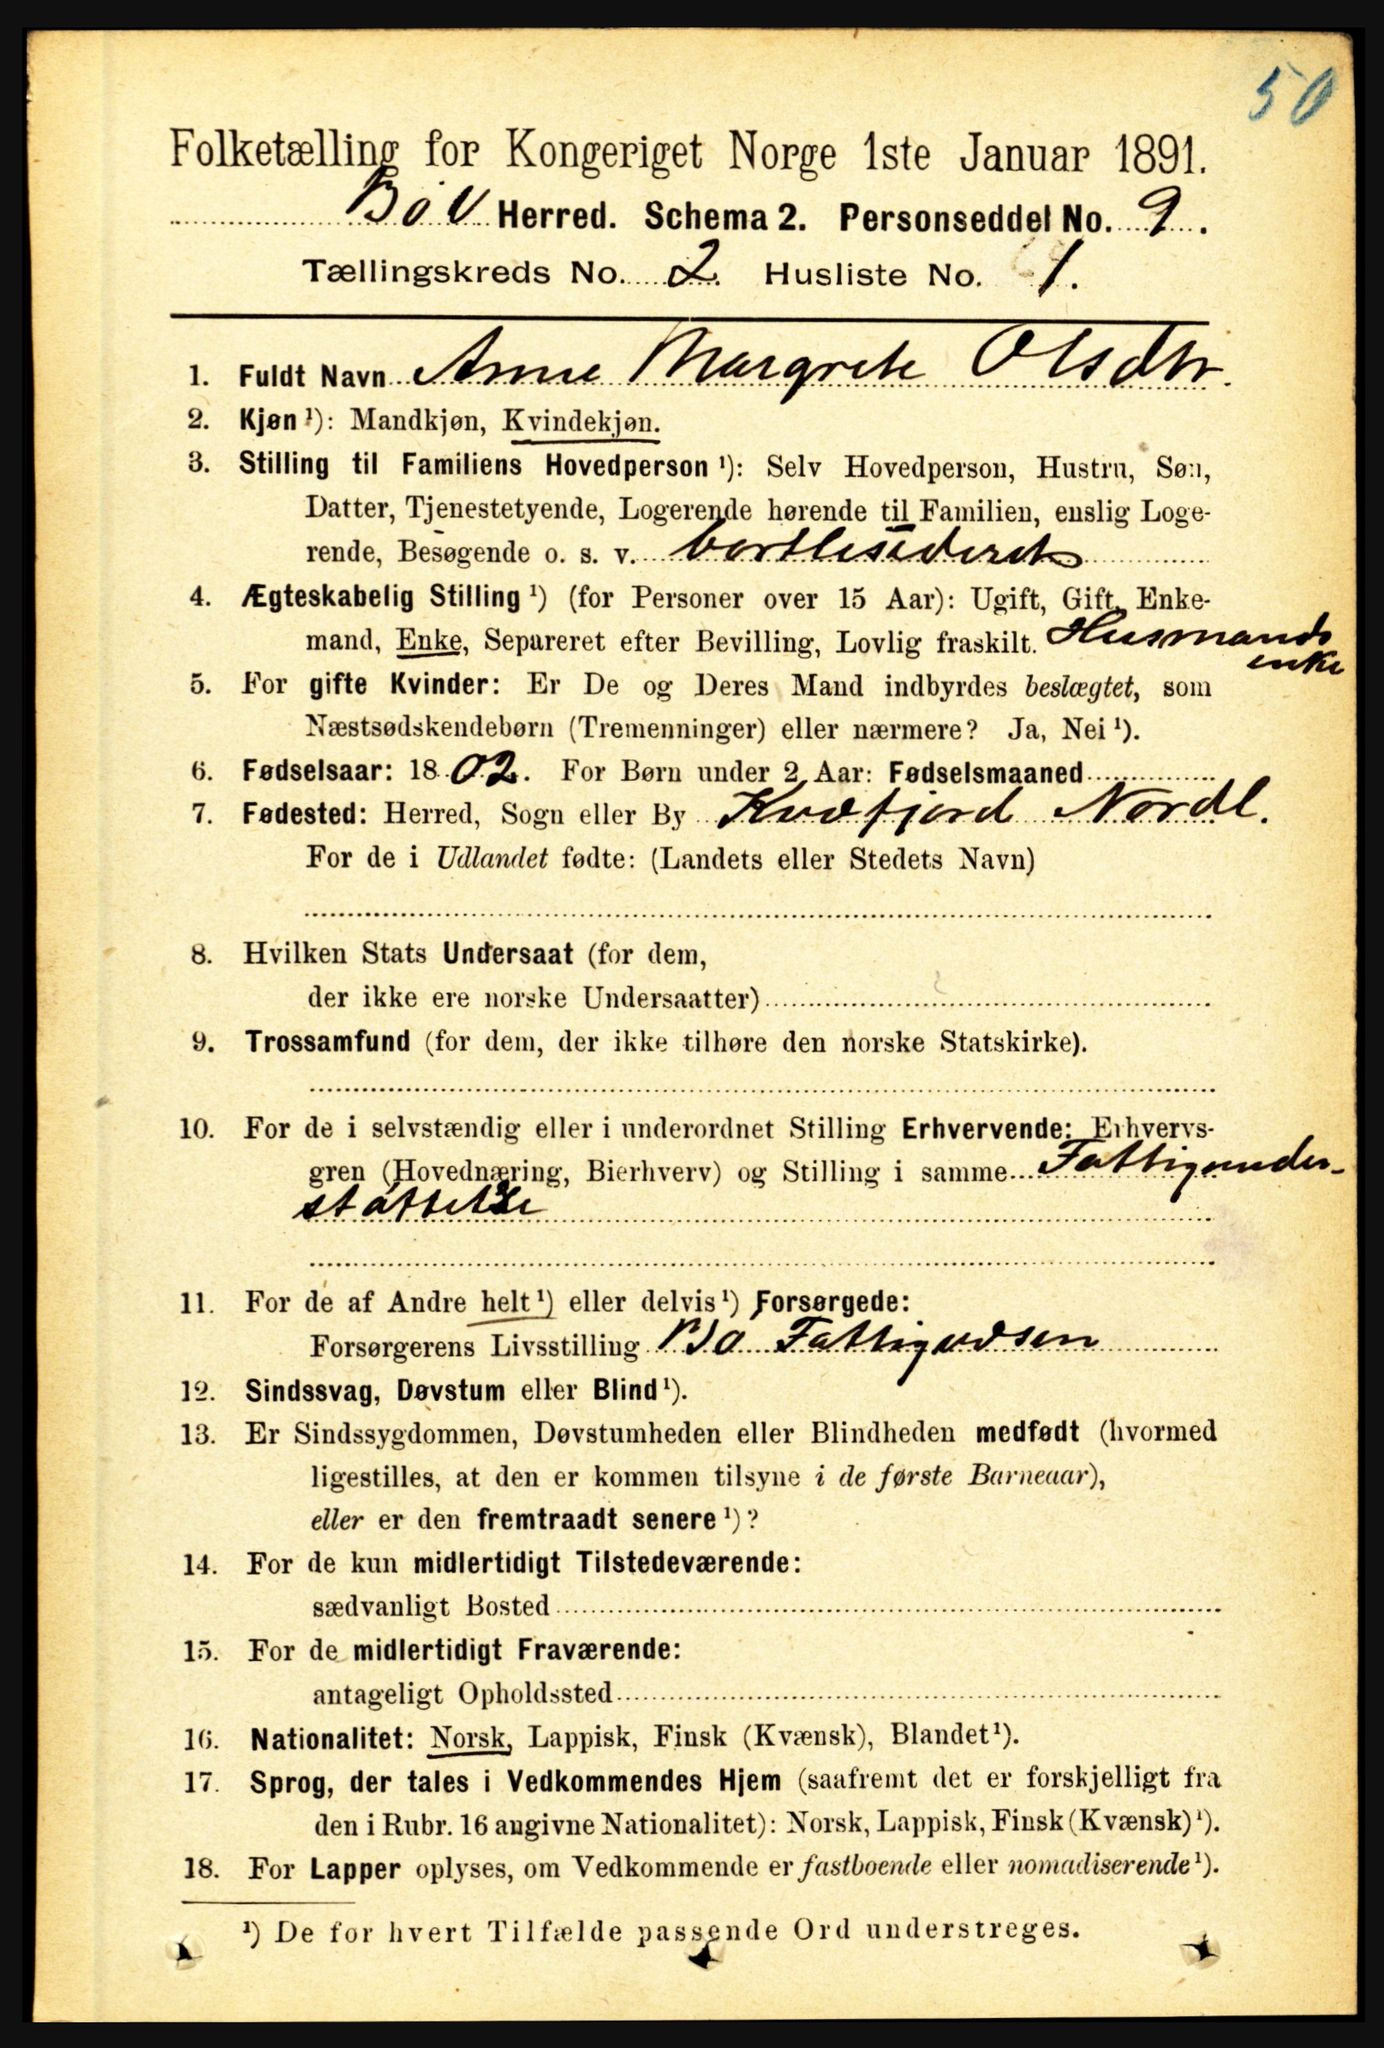 50
Folketælling for Kongeriget Norge 1ste Januar 1891.
Bø Herred. Schema 2. Personseddel No. 9.
Tællingskreds No. 2. Husliste No. 1.
1. Fuldt Navn Anne Margrete Olsdtr.
2. Kjøn ¹): Mandkjøn, Kvindekjøn.
3. Stilling til Familiens Hovedperson ¹): Selv Hovedperson, Hustru, Søn,
Datter, Tjenestetyende, Logerende hørende til Familien, enslig Loge-
rende, Besøgende o. s. v. bortlisideret
4. Ægteskabelig Stilling ¹) (for Personer over 15 Aar): Ugift, Gift, Enke-
mand, Enke, Separeret efter Bevilling, Lovlig fraskilt. Husmands
enke
5. For gifte Kvinder: Er De og Deres Mand indbyrdes beslægtet, som
Næstsødskendebørn (Tremenninger) eller nærmere? Ja, Nei ¹).
6. Fødselsaar: 1802. For Børn under 2 Aar: Fødselsmaaned
7. Fødested: Herred, Sogn eller By Kvæfjord Nordl.
For de i Udlandet fødte: (Landets eller Stedets Navn)
8. Hvilken Stats Undersaat (for dem,
der ikke ere norske Undersaatter)
9. Trossamfund (for dem, der ikke tilhøre den norske Statskirke).
10. For de i selvstændig eller i underordnet Stilling Erhvervende: Erhvervs-
gren (Hovednæring, Bierhverv) og Stilling i samme Fattigunder-
støttelse
11. For de af Andre helt ¹) eller delvis ¹) Forsørgede:
Forsørgerens Livsstilling Fattigvæsen
12. Sindssvag, Døvstum eller Blind ¹).
13. Er Sindssygdommen, Døvstumheden eller Blindheden medfødt (hvormed
ligestilles, at den er kommen tilsyne i de første Barneaar),
eller er den fremtraadt senere ¹)?
14. For de kun midlertidigt Tilstedeværende:
sædvanligt Bosted
15. For de midlertidigt Fraværende:
antageligt Opholdssted
16. Nationalitet: Norsk, Lappisk, Finsk (Kvænsk), Blandet ¹).
17. Sprog, der tales i Vedkommendes Hjem (saafremt det er forskjelligt fra
den i Rubr. 16 angivne Nationalitet): Norsk, Lappisk, Finsk (Kvænsk) ¹).
18. For Lapper oplyses, om Vedkommende er fastboende eller nomadiserende ¹).
¹) De for hvert Tilfælde passende Ord understreges.